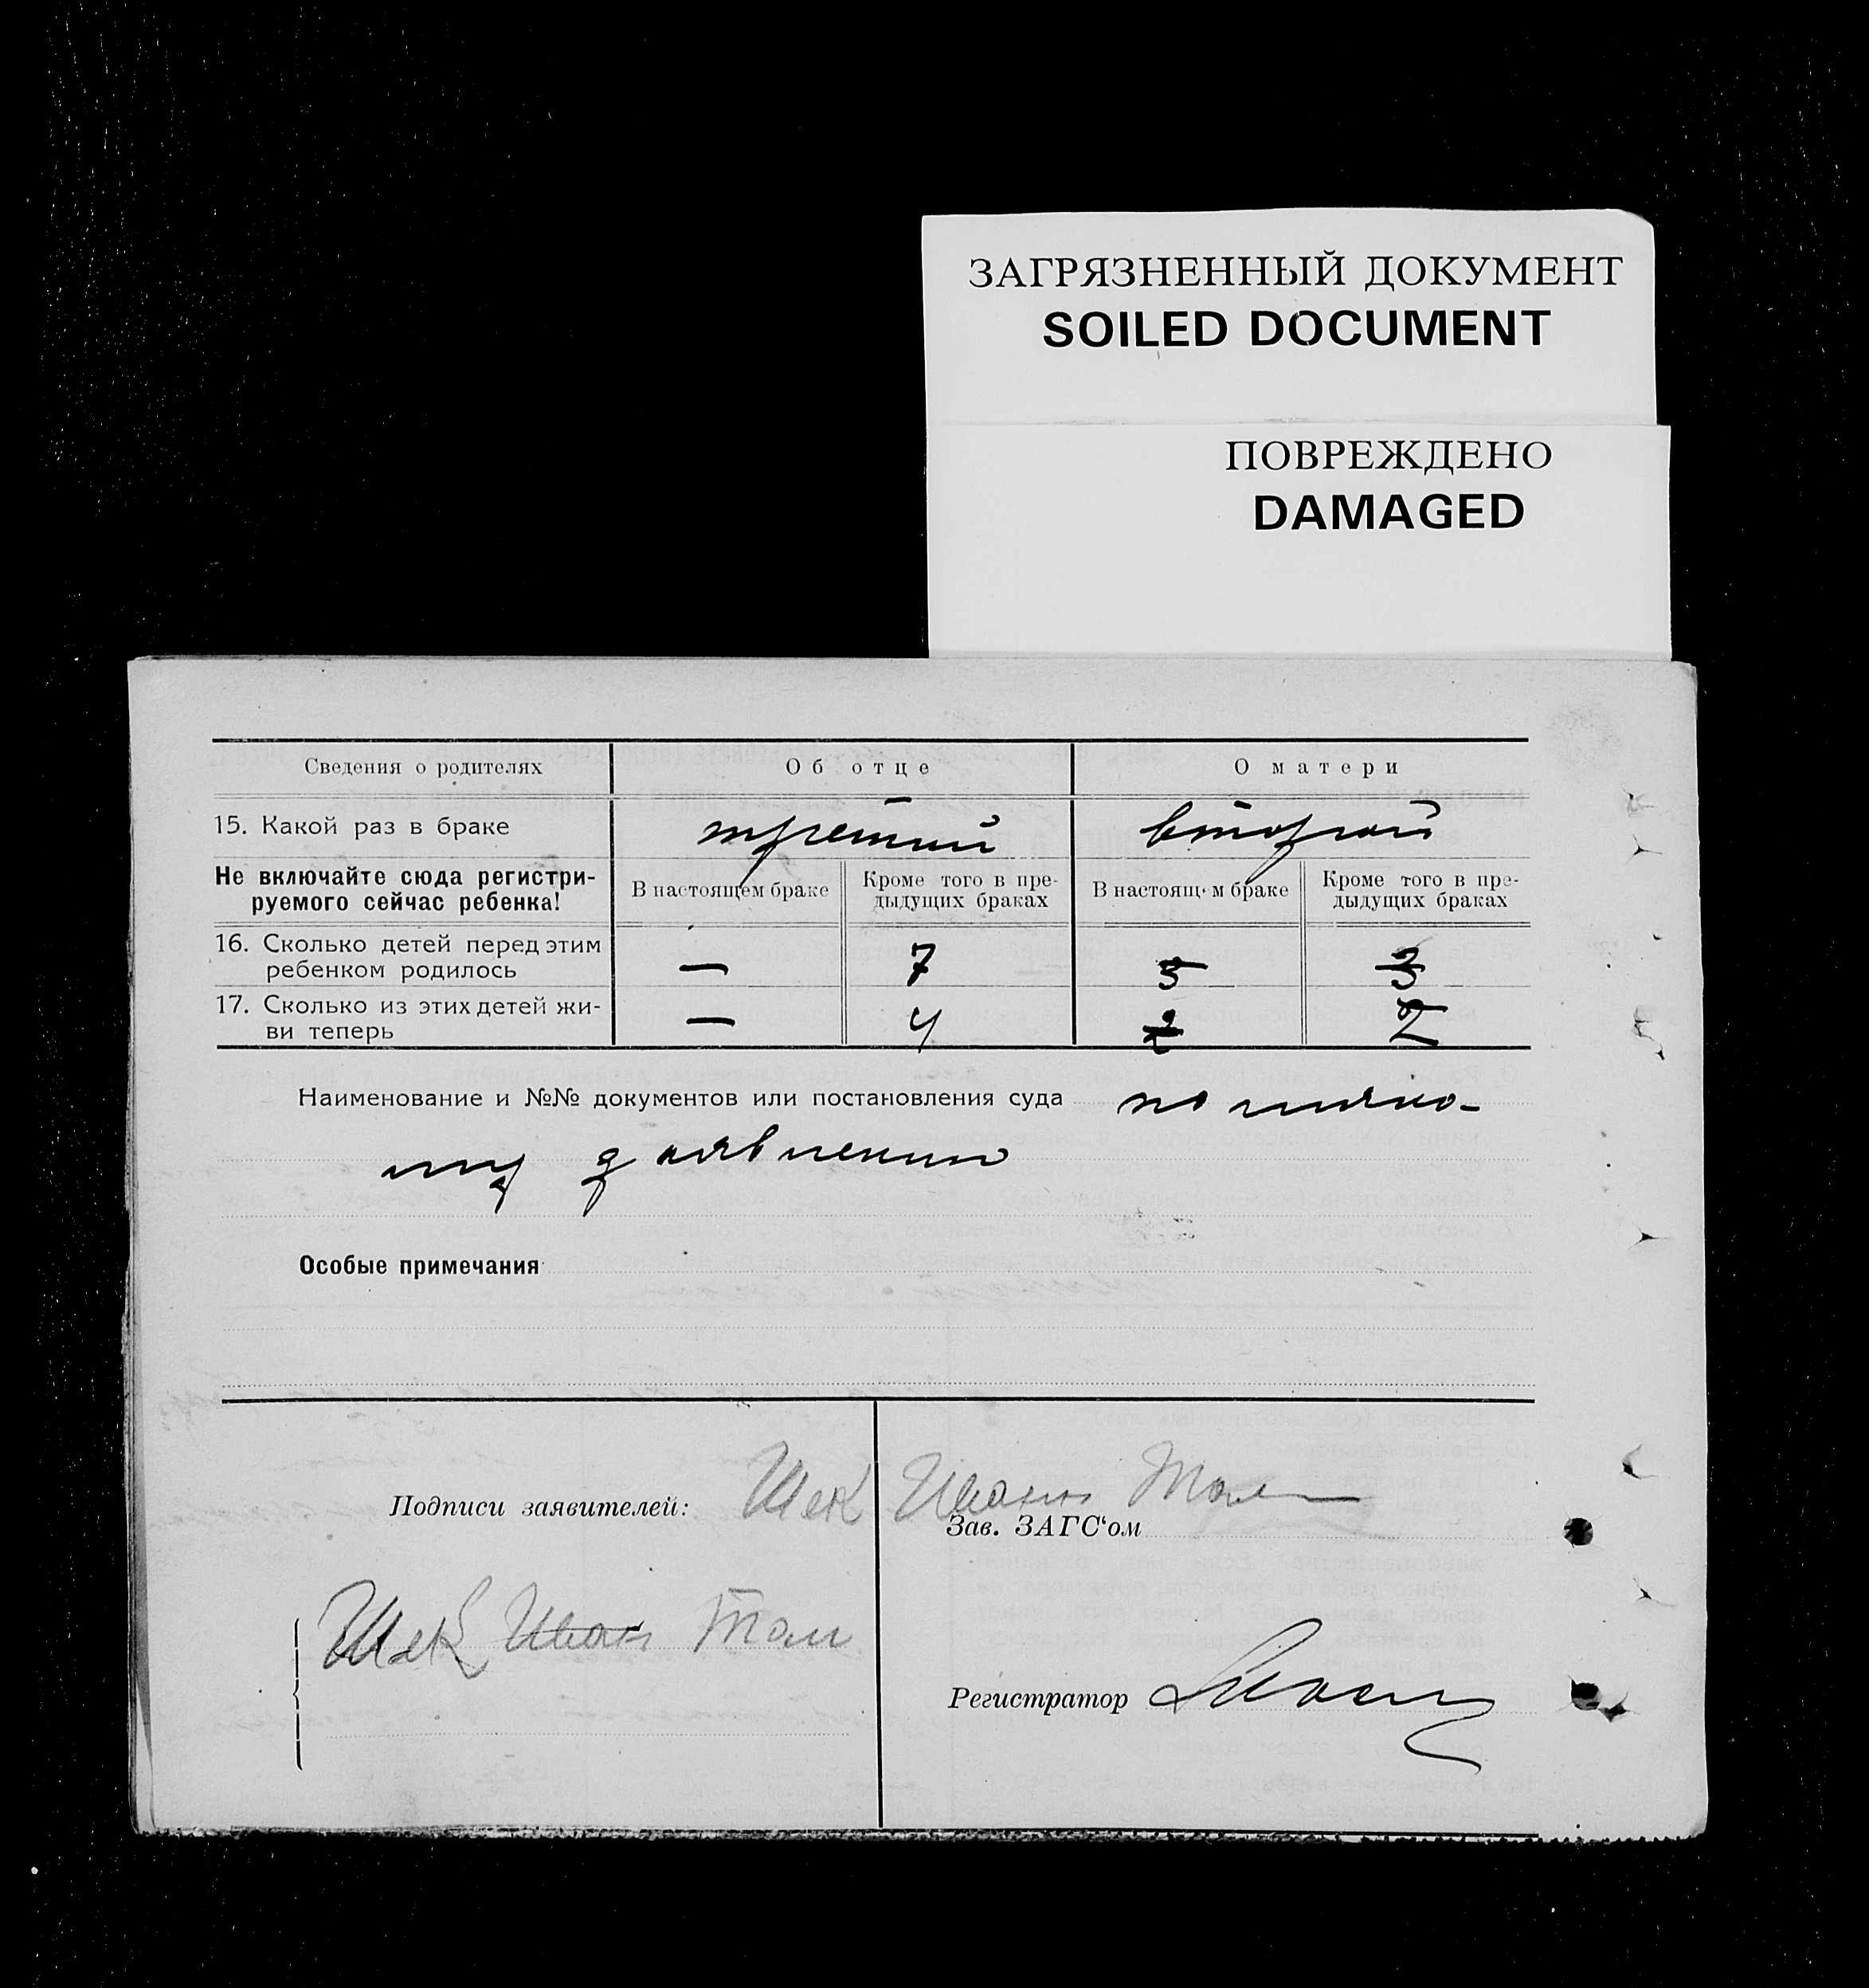 ЗАГРЯЗНЕННЫЙ ДОКУМЕНТ
SOILED DOCUMENT
ПОВРЕЖДЕНО
DAMAGED
Сведения о родителях Об отце О матери
15. Какой раз в браке третий второй
Не включайте сюда регистри-
руемого сейчас ребенка!
В настоящем браке Кроме того в пре-
дыдущих браках
В настоящем браке Кроме того в пре-
дыдущих браках
16. Сколько детей перед этим
ребенком родилось — 7 3 3
17. Сколько из этих детей жи-
ви теперь — 4 2 2
Наименование и №№ документов или постановления суда по лично-
му заявлению
Особые примечания
Подписи заявителей: Шек Иван
Зав. ЗАГС'ом
Шек Иван
Регистратор